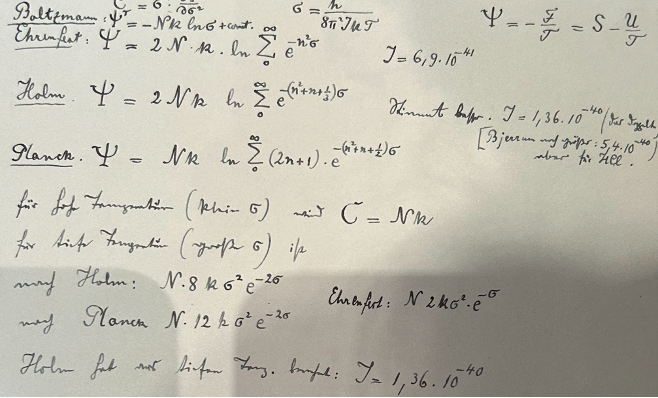 Boltzmann: Ψ = -Nk ln σ + const. σ = h / 8π²JkT Ψ = - F/T = S - U/T
Ehrenfest: Ψ = 2 N · k · ln ∑₀^∞ e^(-n²σ) J = 6,9 · 10⁻⁴¹
Holm. Ψ = 2 N k ln ∑₀^∞ e^(-(n²+n+½)σ) Stimmt besser. J = 1,36 · 10⁻⁴⁰
[Bjerrum noch größer: 5,4 · 10⁻⁴⁰
aber für HCl.
Planck. Ψ = Nk ln ∑₀^∞ (2n+1) · e^(-(n²+n+½)σ)
für hohe Temperatur (klein σ) wird C = Nk
für tiefe Temperatur (große σ) ist
nach Holm: N · 8 k σ² e^(-2σ) Ehrenfest: N 2kσ² · e^(-σ)
nach Planck N · 12 k σ² e^(-2σ)
Holm hat aus tiefen Temp. berechnet: J = 1,36 · 10⁻⁴⁰